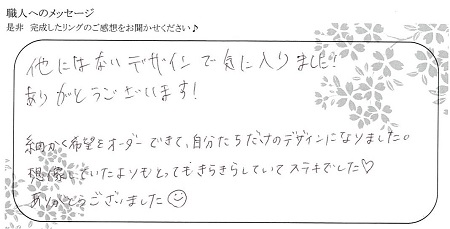 職人へのメッセージ
是非 完成したリングのご感想をお聞かせください♪
他にはないデザインで気に入りました!
ありがとうございます!
細かく希望をオーダーできて、自分たちだけのデザインになりました。
想像していたよりもとってもきらきらしていてステキでした♡
ありがとうございました☺